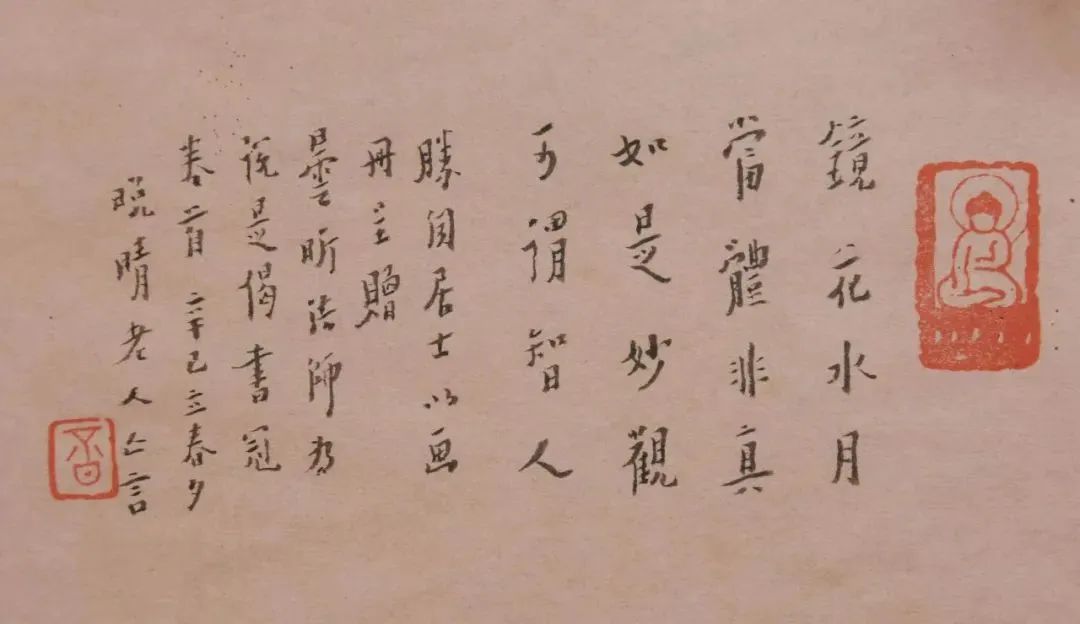 鏡花水月
當體非真
如是妙觀
可謂智人
勝居士以画
冊主贈
曇昕法師為
說是偈書冠
卷首 辛巳立春夕
晚晴老人亡言